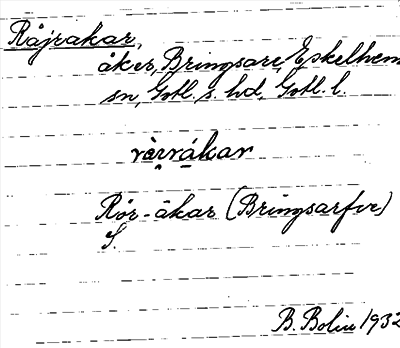 Råjrakar,
åker, Bringsare, Eskelhem
sn, Gotl. s. hd, Gotl. l.
rèrrákar
Rör-åkar (Bringsarfve)
S.
B. Bolin 1932